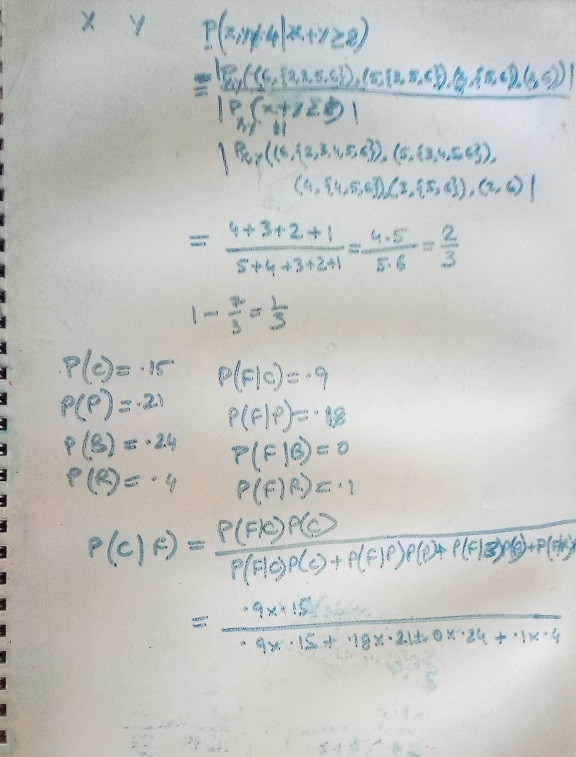 X Y
P(x,y≠4|x+y≥8)
= |P_{x,y}((6,{2,3,5,6}),(5,{3,5,6}),(3,{5,6}),(2,6))|
|P_{x,y}(x+y≥8)|
"
|P_{x,y}((6,{2,3,4,5,6}),(5,{3,4,5,6}),
(4,{4,5,6}),(3,{5,6}),(2,6)|
= 4+3+2+1 / 5+4+3+2+1 = 4·5 / 5·6 = 2/3
1 - 2/3 = 1/3
P(C)=·15 P(F|C)=·9
P(P)=·21 P(F|P)=·18
P(B)=·24 P(F|B)=0
P(R)=·4 P(F|R)=·1
P(C|F) = P(F|C)P(C) / P(F|C)P(C)+P(F|P)P(P)+P(F|B)P(B)+P(F|R)
= ·9x·15 / ·9x·15 + ·18x·21 + 0x·24 + ·1x·4